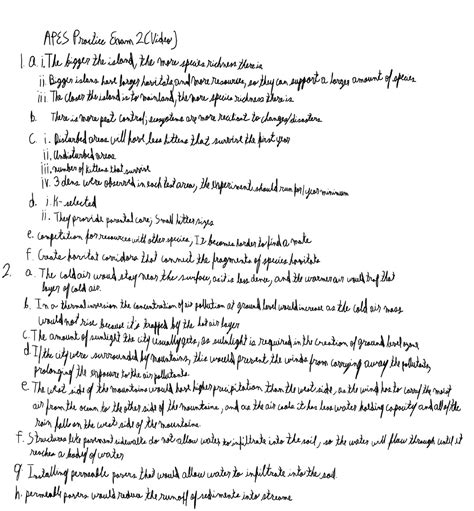 APES Practice Exam 2 (Video)
1. a. i. The bigger the island, the more species richness there is
ii. Bigger islans have larger havitats and more resources, so they can support a larger amount of species
iii. The closer the island is to mainland, the more species richness there is
b. There is more pest control, ecosystems are more resistant to changes/disasters
c. i. Disturbed areas will have less kittens that survive the first year
ii. Undisturbed areas
iii. number of kittens that survive
iv. 3 dens were observed in each test area, the experiment should run for 1 year minimum
d. i. K-selected
ii. They provide parental care, small litter sizes
e. competation for resources with other species, It becomes harder to find a mate
f. Create havitat corridors that connect the fragments of species havitats
2. a. The cold air would stay near the surface, as it is less dense, and the warmer air would trap that
layer of cold air.
b. In a thermal inversion the concentration of air pollution at ground level would increase as the cold air mass
would not rise because it's trapped by the hot air layer
c. The amount of sunlight the city usually gets, as sunlight is required in the creation of ground level ozone
d. If the city were surrounded by mountains, this would prevent the winds from carrying away the pollutants,
prolonging the exposure to the air pollutants.
e. The west side of the mountains would have higher precipitation than the east side, as the wind has to carry the moist
air from the ocean to the other side of the mountains, and as the air cools it has less water holding capacity and all of the
rain falls on the west side of the mountains.
f. Structures like pavement sidewalks do not allow water to infiltrate into the soil, so the water will flow through until it
reaches a body of water
g. Installing permeable pavers that would allow water to infiltrate into the soil.
h. permeable pavers would reduce the runoff of sediments into streams